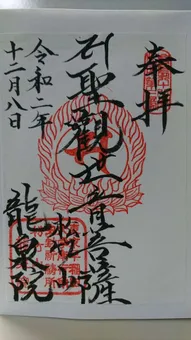 奉拝
聖觀世音菩薩
山
龍泉院
令和二年
十二月八日